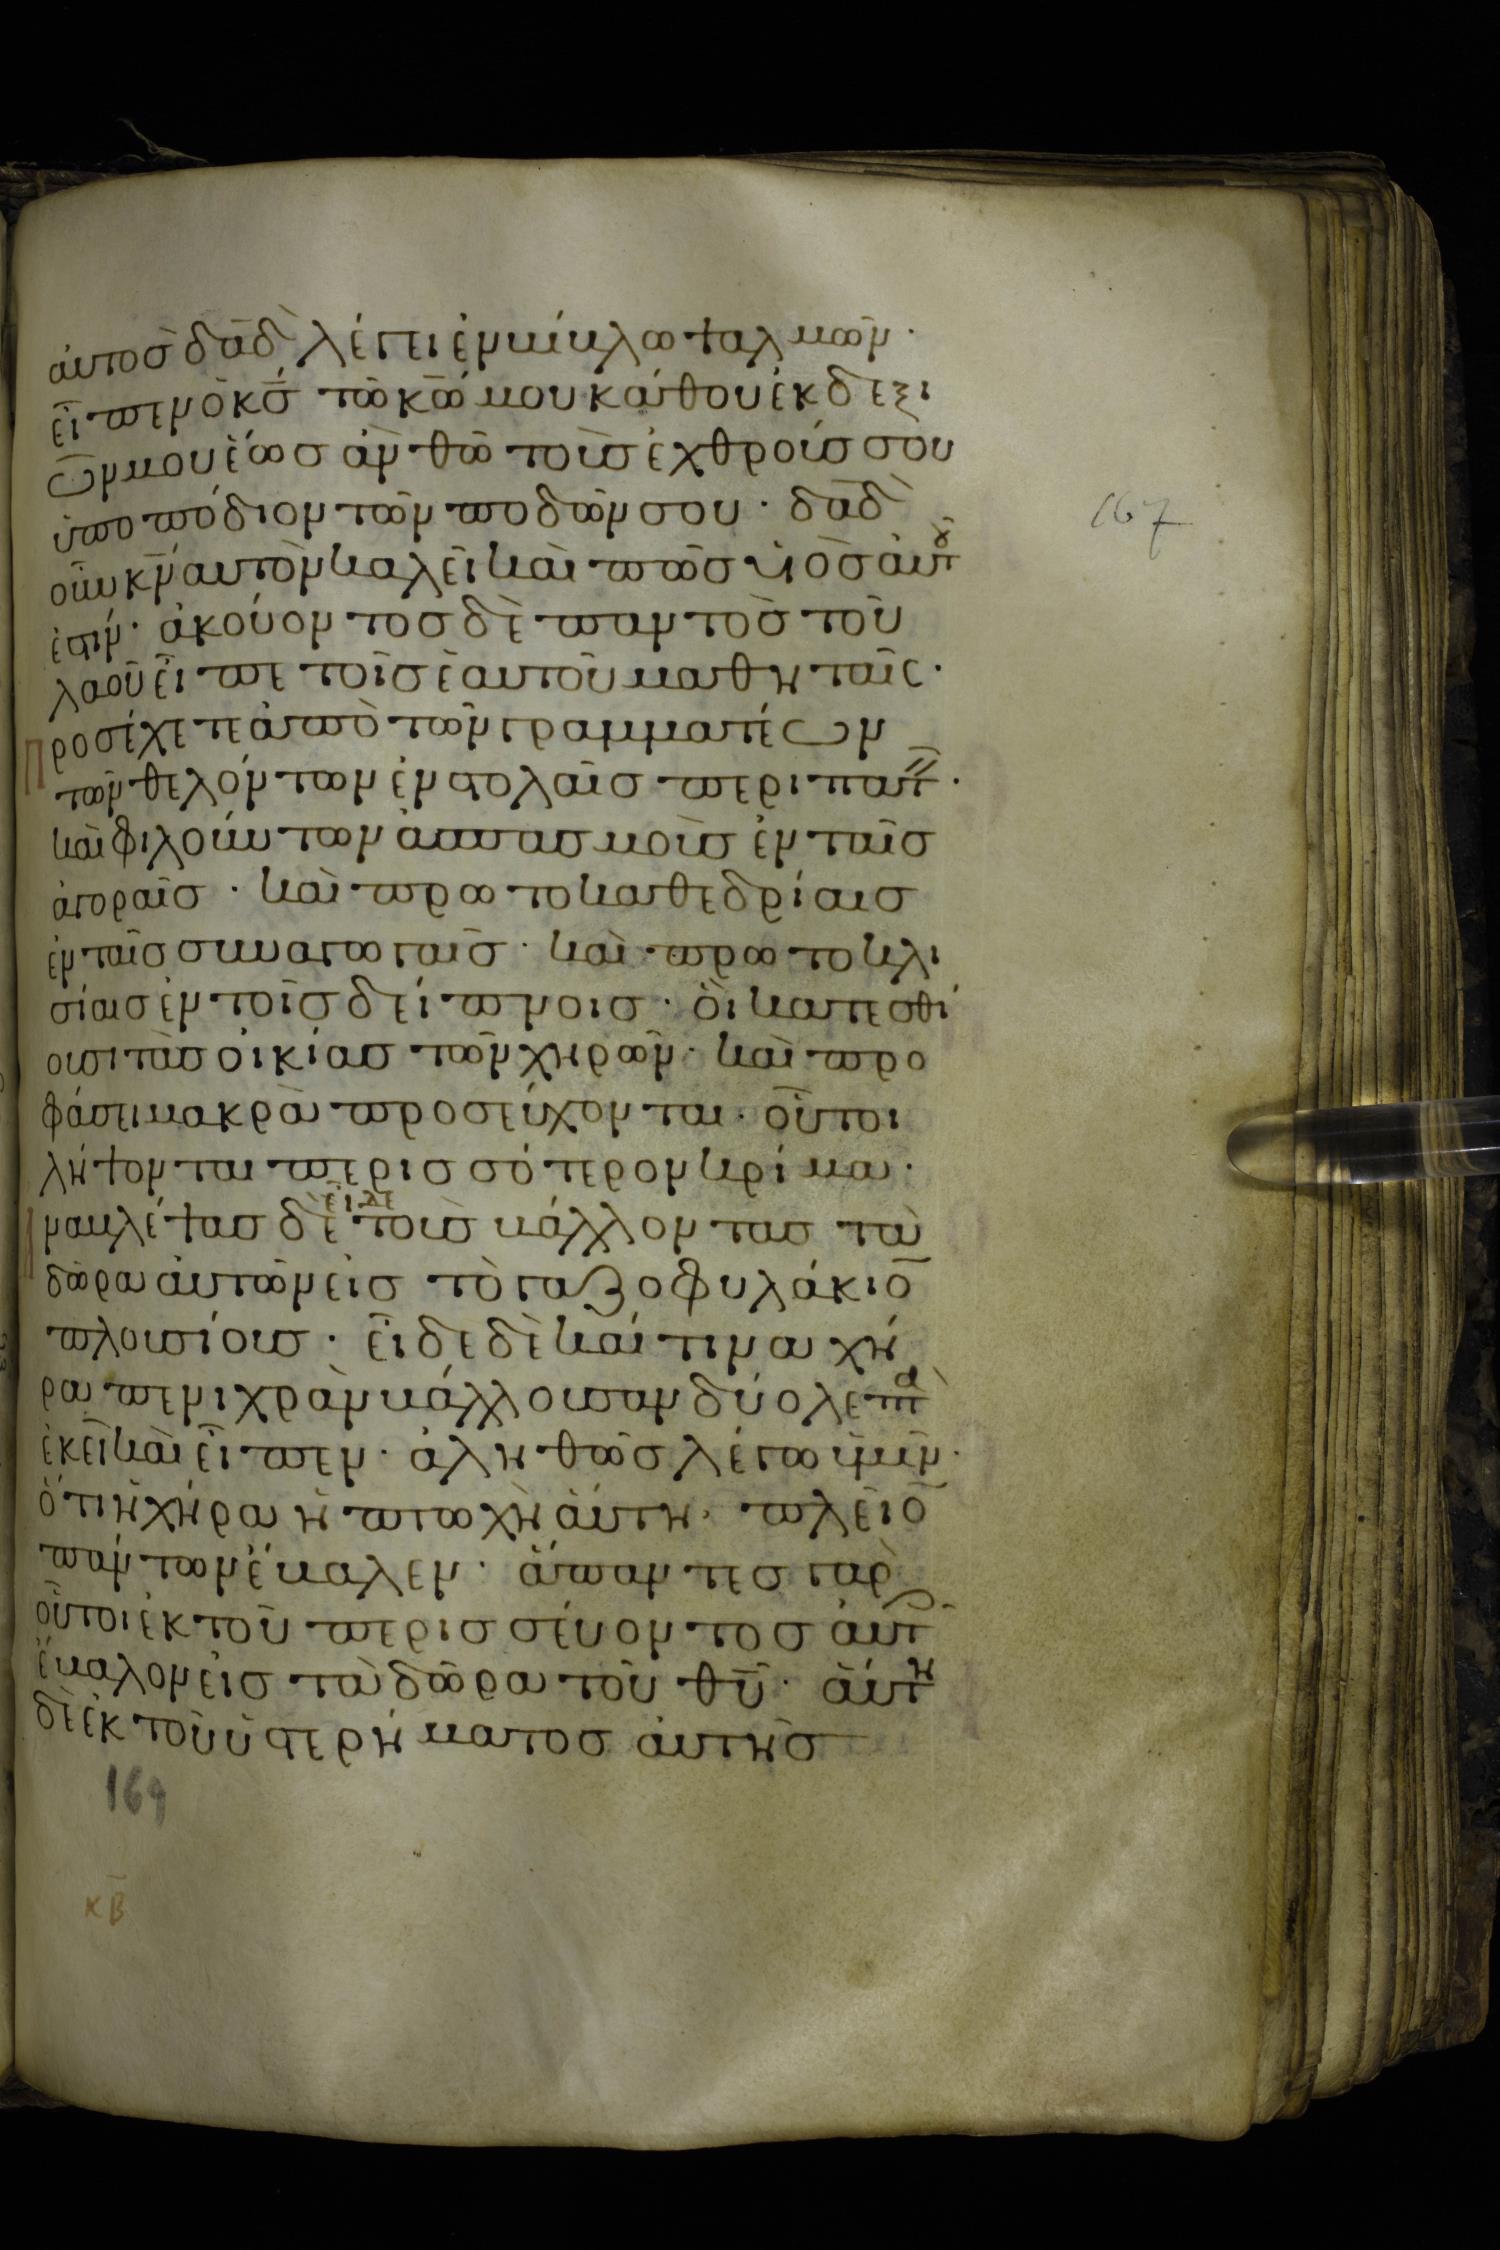 αὐτὸσ δᾱδ̀ λέγει ἐν κύκλω ψαλμῶν·
εἶπεν ὁ κ̅σ̅ τῶ κ̅ω̅ μου κάθου ἐκ δεξι
ῶν μου ἕωσ ἂν θῶ τοὺσ ἐχθρούσ σου
ὑποπόδιον τῶν ποδῶν σου· δᾱδ̀
οὖν κ̅ν̅ αὐτὸν καλεῖ καὶ πῶσ υἱὸσ αὐτου
ἐστίν· ἀκούοντοσ δὲ παντὸσ τοῦ
λαοῦ εἶπε τοῖσ ἑαυτοῦ μαθηταῖς·
Προσέχετε ἀπὸ τῶν γραμματέων
τῶν θελόντων ἐν στολαῖσ περιπατ̅·
καὶ φιλούντων ἀσπασμοὺσ ἐν ταῖσ
ἀγοραῖσ· καὶ πρωτοκαθεδρίαισ
ἐν ταῖσ συναγωγαῖσ· καὶ πρωτοκλι
σίαισ ἐν τοῖσ δείπνοισ· οἳ κατεσθί
ουσι τὰσ οἰκίασ τῶν χηρῶν· καὶ προ
φάσει μακρὰ προσεύχονται· οὗτοι
λήψονται περισσότερον κρίμα·
Ἀνακλέψασ δὲ εἶδε τοὺσ βάλλοντασ τὰ
δῶρα αὐτῶν εἰσ τὸ γαζοφυλάκιο̅
πλουσίουσ· εἶδε δὲ καί τινα χή
ρα πενιχρὰν βάλλουσαν δύο λεπτὰ
ἐκεῖ καὶ εἶπεν· ἀληθῶσ λέγω ὑμῖν·
ὅτι ἡ χήρα ἡ πτωχὴ αὕτη· πλεῖο̅
πάντων ἔβαλεν· ἅπαντεσ γὰρ
οὗτοι ἐκ τοῦ περισσεύοντοσ αὐτῶν
ἔβαλον εἰσ τὰ δῶρα τοῦ θ̅υ̅· αὕτη
δὲ ἐκ τοῦ ὑστερήματοσ αὐτῆσ
167
169
κ̅β̅